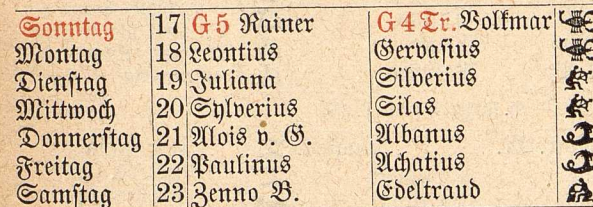 Sonntag 17 G 5 Rainer G 4 Tr. Volkmar
Montag 18 Leontius Gervasius
Dienstag 19 Juliana Silverius
Mittwoch 20 Sylverius Silas
Donnerstag 21 Alois v. G. Albanus
Freitag 22 Paulinus Achatius
Samstag 23 Zenno B. Edeltraud